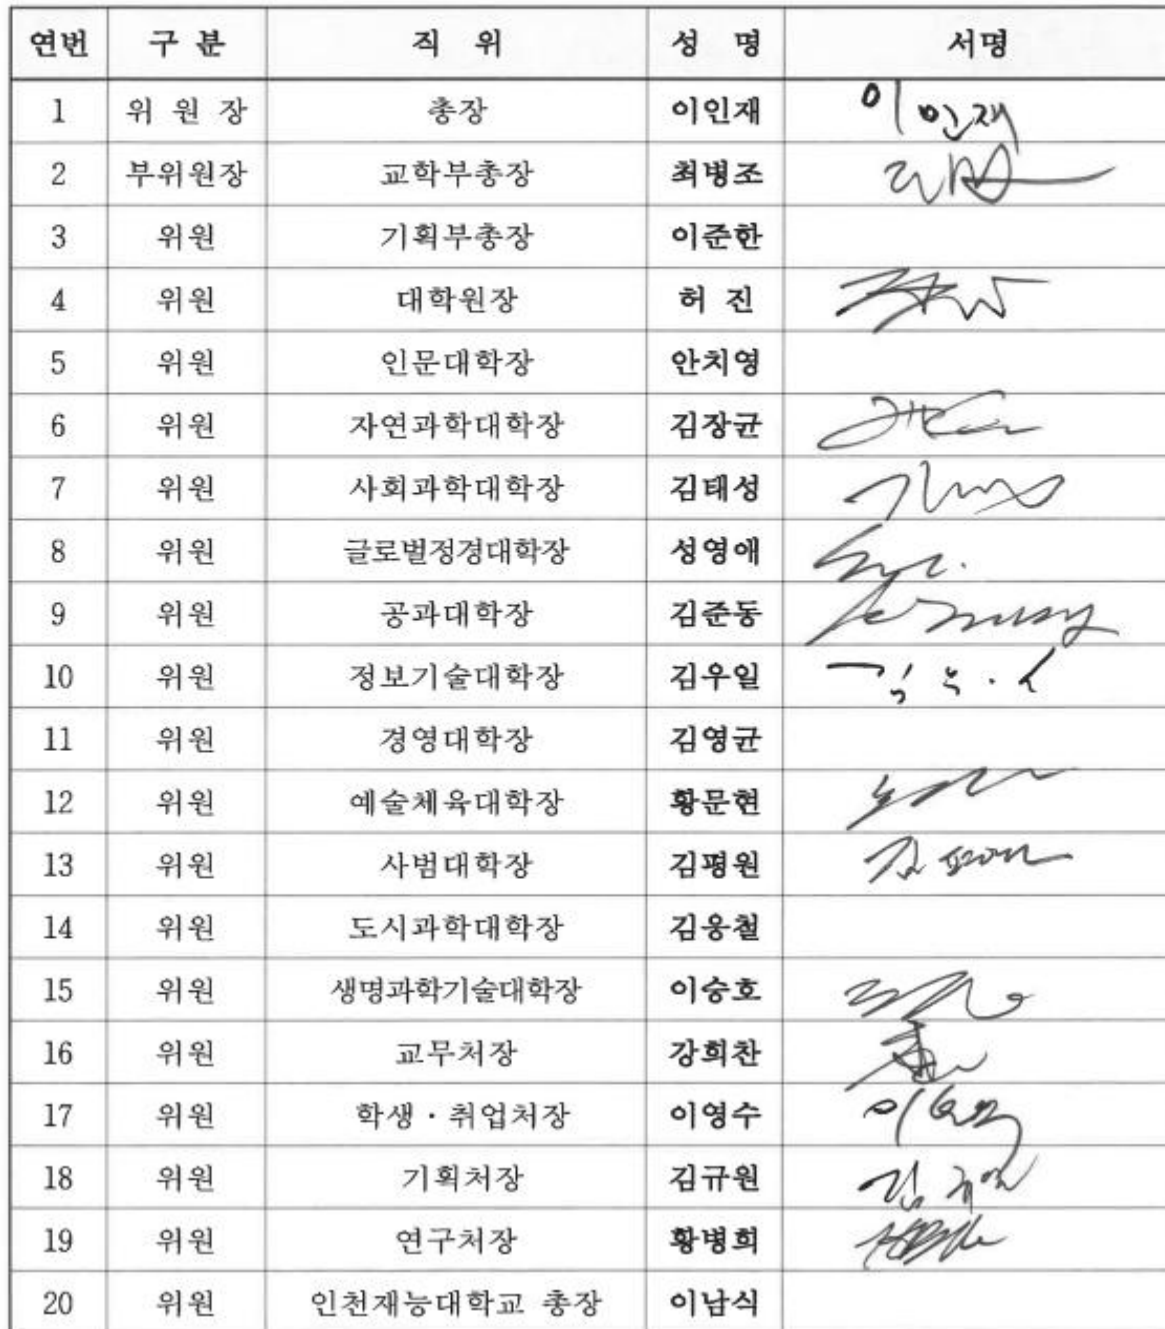 연번 구 분 직 위 성 명 서명
1 위 원 장 총장 이인재 이인재
2 부위원장 교학부총장 최병조
3 위원 기획부총장 이준한
4 위원 대학원장 허 진
5 위원 인문대학장 안치영
6 위원 자연과학대학장 김장균
7 위원 사회과학대학장 김태성
8 위원 글로벌정경대학장 성영애
9 위원 공과대학장 김준동
10 위원 정보기술대학장 김우일
11 위원 경영대학장 김영균
12 위원 예술체육대학장 황문현
13 위원 사범대학장 김평원
14 위원 도시과학대학장 김웅철
15 위원 생명과학기술대학장 이승호
16 위원 교무처장 강희찬
17 위원 학생·취업처장 이영수
18 위원 기획처장 김규원
19 위원 연구처장 황병희
20 위원 인천재능대학교 총장 이남식